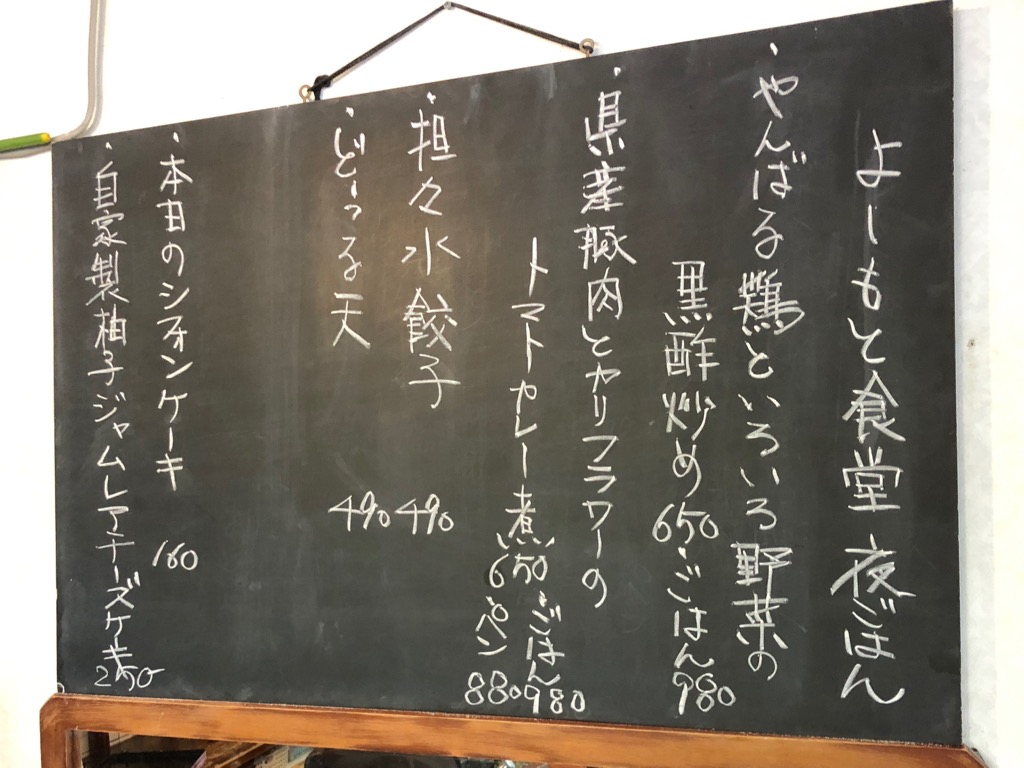 よしもと食堂 夜ごはん
・やんばる鶏といろいろ野菜の
黒酢炒め 650 ・ごはん 980
・県産豚肉とカリフラワーの
トマトカレー煮 650 ・ごはん 980
・ペン 880
・担々水餃子 490
・どぅる天 490
・本日のシフォンケーキ 160
・自家製柚子ジャムレアチーズケーキ 250